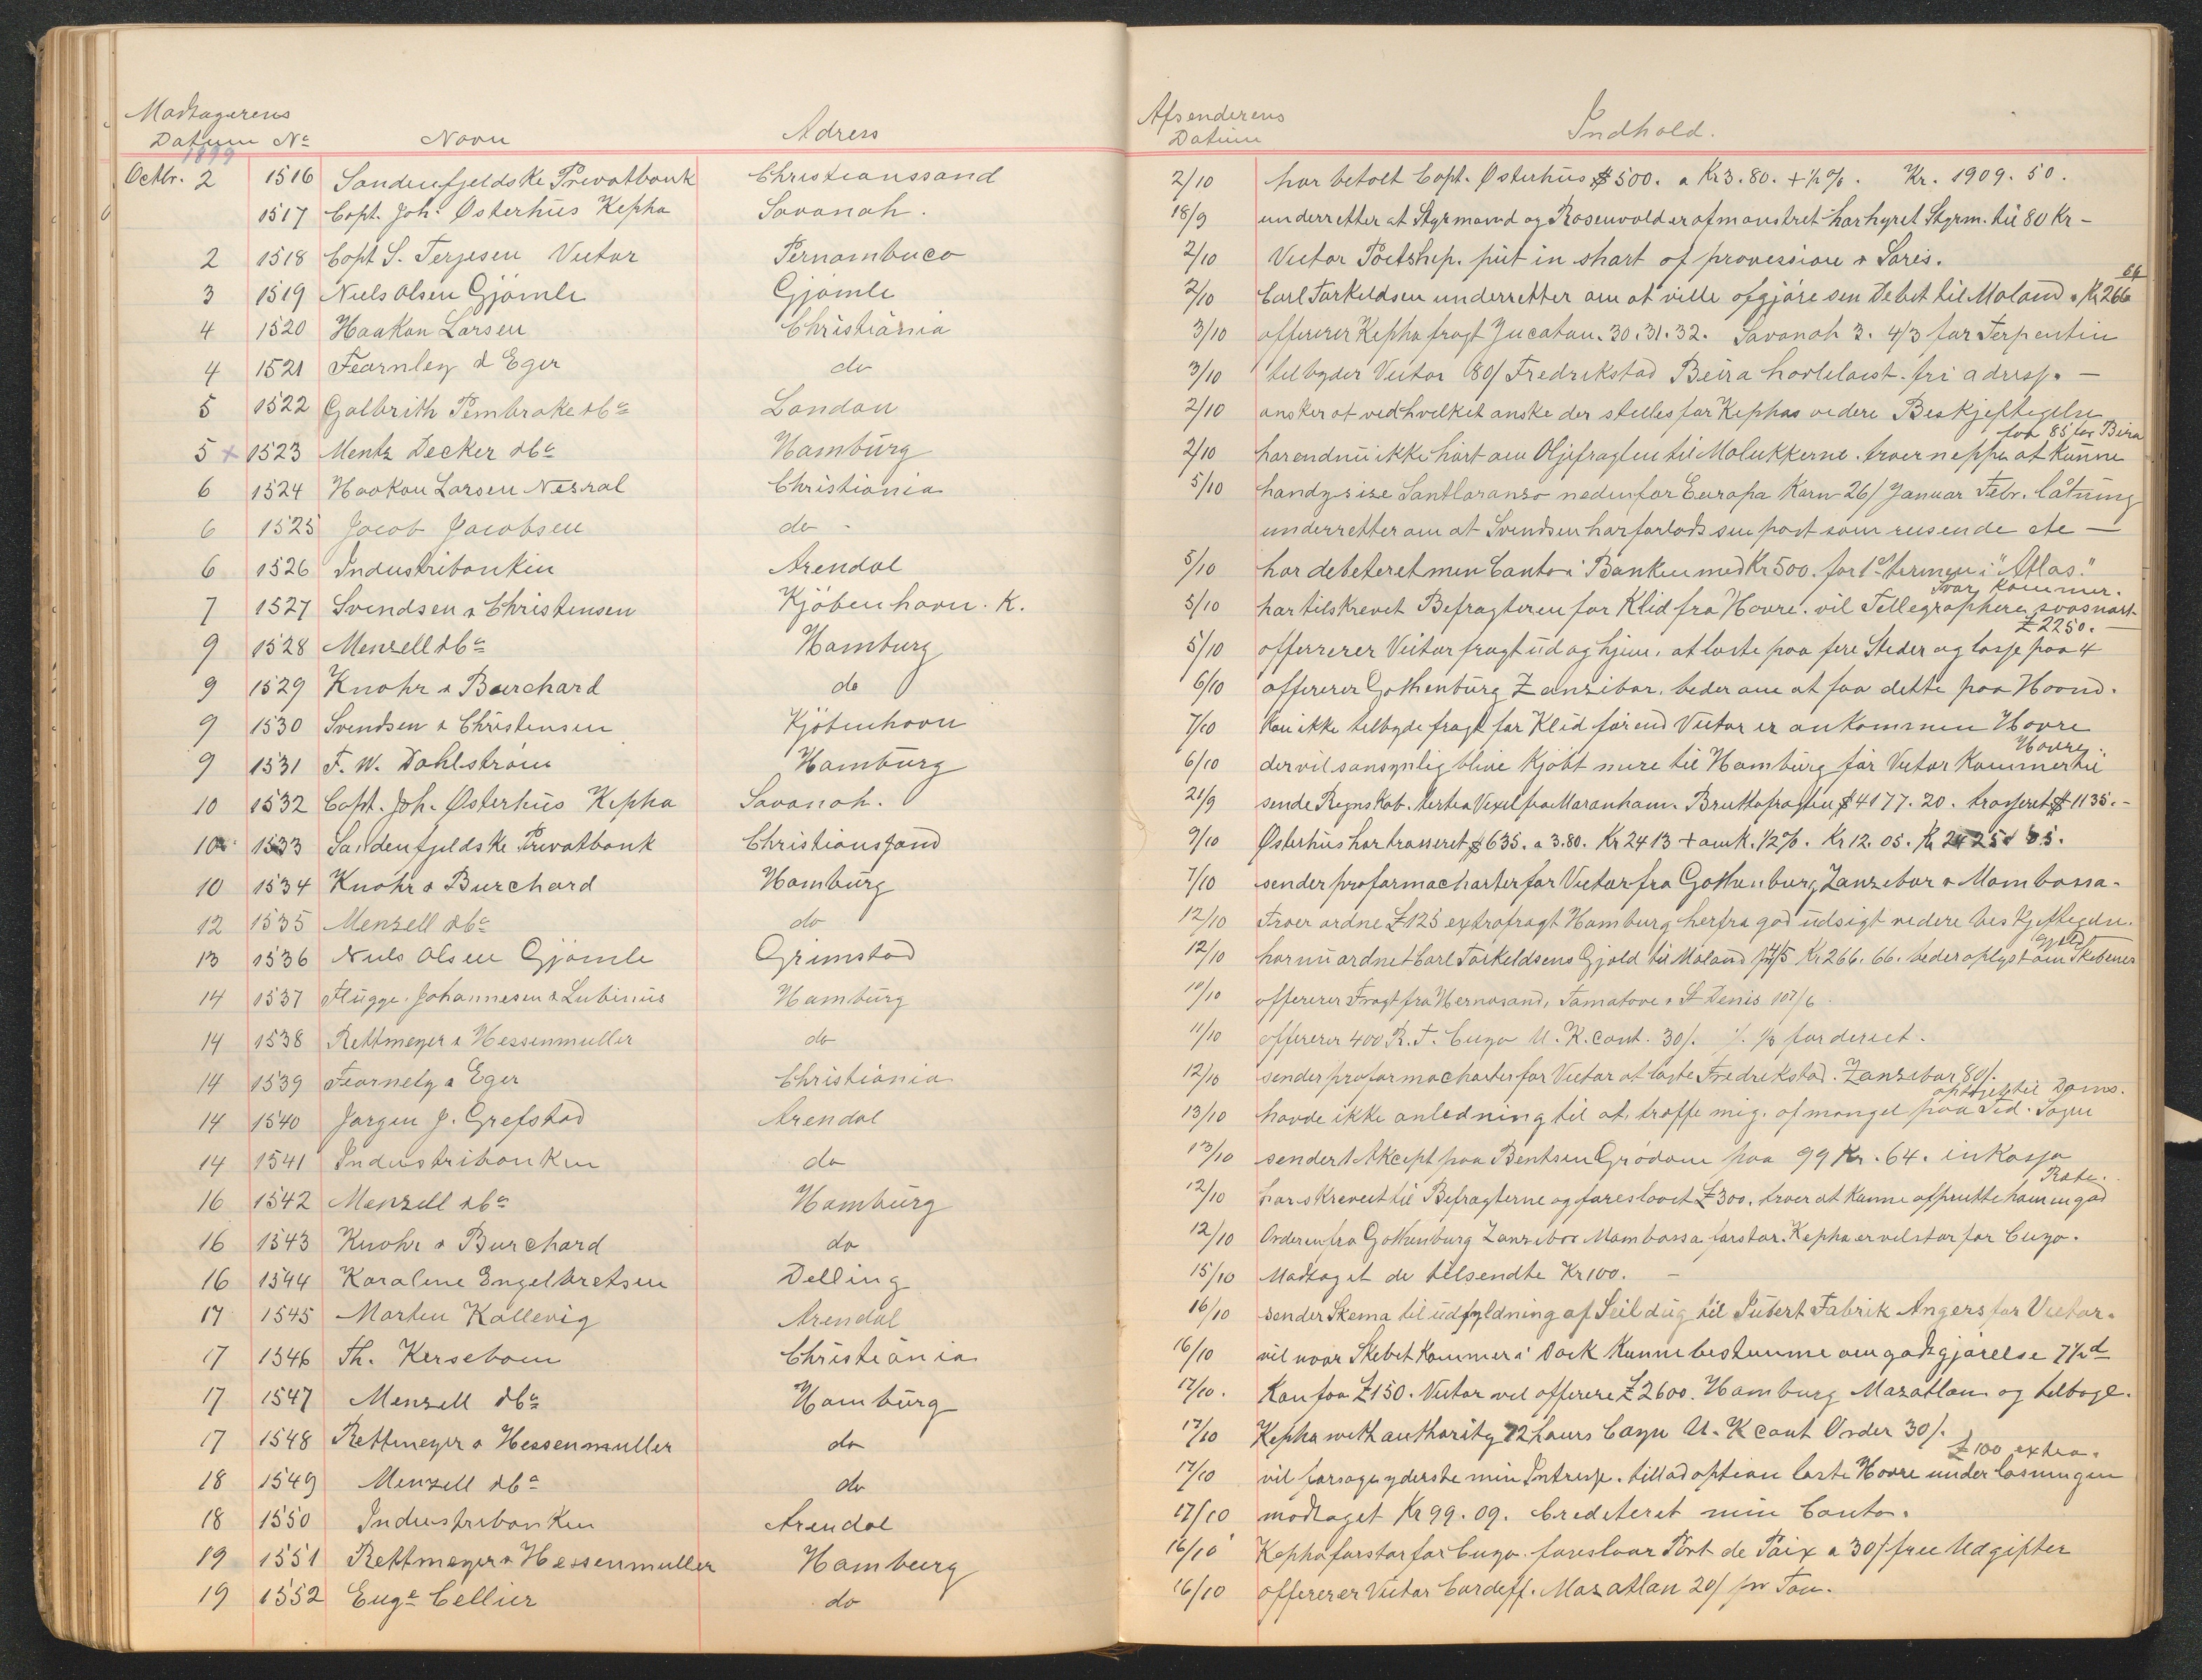 Modtagerens
Datum No Navn Adress
1899
Octbr. 2 1516 Søndenfjeldske Privatbank Christianssand
1517 Capt. Joh. Østerhus Kepha Savanah.
2 1518 Capt S. Terjesen Victor Pernambuco
3 1519 Niels Olsen Gjømle Gjømle
4 1520 Haakon Larsen Christiania
4 1521 Fearnley & Eger do
5 1522 Galbrith Pembroke & Co London
5 x 1523 Mentz Decker & Co Hamburg
6 1524 Haakon Larsen Nesral Christiania
6 1525 Jacob Jacobsen do -
6 1526 Industribanken Arendal
7 1527 Svendsen & Christensen Kjöbenhavn. K.
9 1528 Menzell & Co Hamburg
9 1529 Knohr & Burchard do
9 1530 Svendsen & Christensen Kjöbenhavn
9 1531 F. W. Dahlstrøm Hamburg
10 1532 Capt. Joh. Østerhus Kepha Savanah.
10 1533 Søndenfjeldske Privatbank Christianssand
10 1534 Knohr & Burchard Hamburg
12 1535 Menzell & Co do
13 1536 Niels Olsen Gjømle Grimstad
14 1537 Flügge. Johannesen & Lubinus Hamburg
14 1538 Rettmeyer & Hessenmuller do
14 1539 Fearnely & Eger Christiania
14 1540 Jørgen J. Grefstad Arendal
14 1541 Industribanken do
16 1542 Menzell & Co Hamburg
16 1543 Knohr & Burchard do
16 1544 Karoline Engelbretsen Delling
17 1545 Morten Kallevig Arendal
17 1546 Th. Kersebom Christiania
17 1547 Menzell & Co Hamburg
17 1548 Rettmeyer & Hessenmuller do
18 1549 Menzell & Co do
18 1550 Industribanken Arendal
19 1551 Rettmeyer & Hessenmuller Hamburg
19 1552 Euge Cellier do
Afsenderens
Datum Indhold.
2/10 har betalt Capt. Østerhus $500. a Kr 3.80. + ½%. Kr. 1909. 50.
18/9 underretter at Styrmand og Rosenvold er afmønstret har hyret Styrm. til 80 Kr -
2/10 Victor Port ship. put in short of provession &
66
2/10 Carl Torkeldsen underretter om at ville afgjøre sen Debet til Moland. Kr 266
3/10 offererer Kepha fragt Jucatan. 30. 31. 32. Savanah 3. 4/3 for Terpentin
3/10 tilbyder Victor 80/ Fredrikstad Beira fri adresse. -
2/10 ønsker at ved hvilket ønske der stilles for Kephas videre Beskjeftigelse
faa 85 for Bira
2/10 har endnu ikke hørt om Oljefragten til Molukkerne. troer neppe at kunne
5/10 handysise nedenfor Europa Korn 26/ Januar Febr. låtning
underretter om at Svendsen har forlods sin post som reisende etc -
5/10 har debeteret min Conto i Banken med Kr 500. for 1ste termen i "Atlas."
Svar kommer.
5/10 har tilskrevet Befragteren for Klid fra Havre. vil Tellegraphere saasnart
£2250. -
5/10 offererer Victor fragt ud og hjem, at laste paa fere Steder og losse paa 4
6/10 offererer Gothenburg Zanzibar, beder om at faa dette paa Haand.
7/10 kan ikke tilbyde fragt for Klid førend Victor er ankommen Havre
Havre.
6/10 der vil sansynlig blive kjøbt mere til Hamburg før Victor kommer til
21/9 sende Regnskab. tertia Vexel fra Maranham. Bruttofragten $4177. 20. trasseret $1135.-
9/10 Østerhus har trasseret $635. a 3.80. Kr 2413 + omk. ½%. Kr 12. 05. Kr 2425. 05.
7/10 sender proformacharter for Victor fra Gothenburg, Zanzebar & Mombassa.
12/10 Troer ordne £125 extrafragt Hamburg herfra god udsigt videre beskjeftigelse.
Gjeld
12/10 har nu ordnet Carl Torkeldsens Gjæld til Moland Kr 266. 66. beder oplyst om Skebenes
10/10 offererer Fragt fra Hernøsand, Tamatove & St Denis 107/6.
11/10 offererer 400 R. T. Cuyo U. K. cont. 30/. 1/3 for derect.
12/10 sender proformacharter for Victor at laste Fredrikstad. Zanzebar 80/.
opsøgt til Doms.
13/10 havde ikke anledning til at, træffe mig, af mangel paa Tid. Sagen
13/10 sender 1 Akcept paa Bentsen Grødom paa 99 Kr. 64. inkasso
Rate.
12/10 har skrevet til Befragterne og foreslaaet £300. troer at kunne afprutte ham en god
12/10 Orderen fra Gothenburg Zanzebar Mombassa forstor. Kepha er vel stor for Cuyo.
15/10 Modtaget de tilsendte Kr 100. -
16/10 sender Skema til udfyldning af Seildug til Jubert Fabrik Angers for Victor.
16/10 vil naar Skibet kommer i Dock kunne bestemme om godtgjørelse 7½ d
17/10. Kan faa £150. Victor vil offerere £2600. Hamburg Mazatlan og tilbage.
17/10 Kepha with authority 72 hours Cayu U. K cont Order 30/.
£100 extra.
17/10 vil forsøge yderste min Intresse. tillad option laste Havre under løsningen
17/10 modtaget Kr 99. 09. Crediteret min Conto.
16/10 Kepha forstor for Cuyo. foreslaar Port de Paix a 30/ free Udgifter
16/10 offererer Victor Cardeff. Mazatlan 20/ pr Ton.